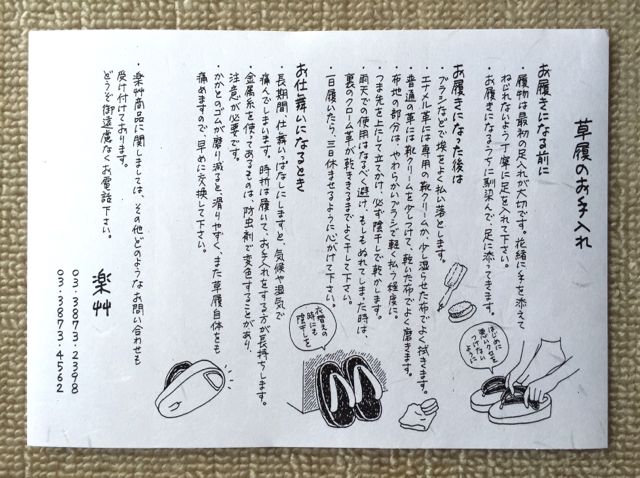 草履のお手入れ
お履きになる前に
・履物は最初の足入れが大切です。花緒に手を添えて
ねじれないよう丁寧に足を入れて下さい。
・お履きになるうちに馴染んで、足に添ってきます。
お履きになった後は
・ブラシなどで埃をよく払い落とします。
・エナメル革には専用の靴クリームか、少し湿らせた布でよく拭きます。
・普通の革には靴クリームを少しつけて、乾いた布でよく磨きます。
・布地の部分は、やわらかいブラシで軽く払う程度に。
・つま先を上にして立てかけ、必ず陰干しで乾かします。
・雨天での使用はなるべく避け、もしもぬれてしまった時は、
裏のクローム革が乾ききるまでよく干して下さい。
・一日履いたら、三日休ませるように心がけて下さい。
お仕舞いになるとき
・長期間、仕舞いっぱなしにしますと、気候や湿気で
痛んでしまいます。時折は履いて、お手入れをする方が長持ちします。
・金属糸を使ってあるものは、防虫剤で変色することがあり、
注意が必要です。
・かかとのゴムが磨り減ると、滑りやすく、また草履自体をも
痛めますので、早めに交換して下さい。
・楽艸商品に関しましては、その他どのようなお問い合わせも
受け付けております。
どうぞ御遠慮なくお電話下さい。
楽艸
03・3873・2398
03・3873・4562
はじめに
悪いクセを
つけない
ように
お衣替えの
時にも
陰干しを